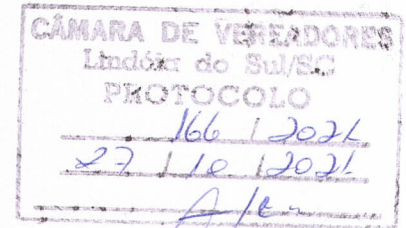 CÂMARA DE VEREADORES
Lindóia do Sul/SC
PROTOCOLO
166 / 2021
27 / 10 / 2021